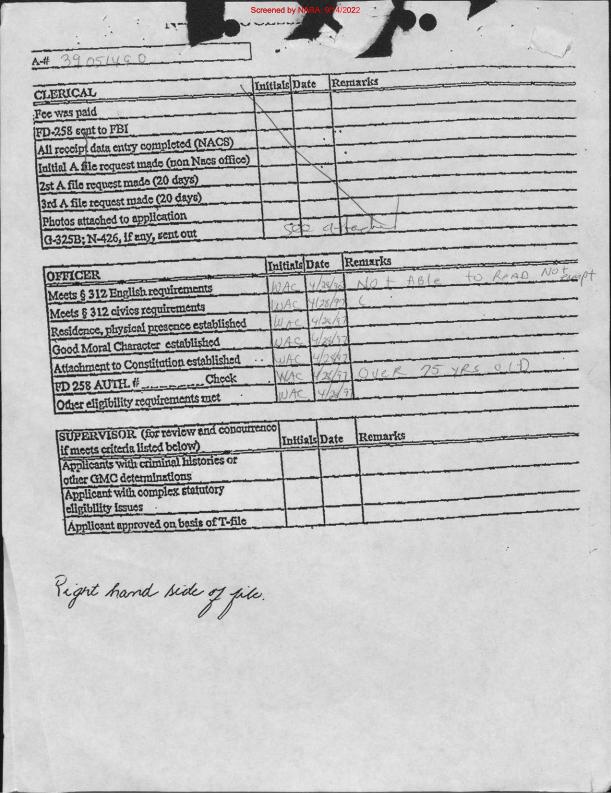 Screened by NARA, 9/14/2022
A-# 39051490
CLERICAL Initials Date Remarks
Fee was paid
FD-258 sent to FBI
All receipt data entry completed (NACS)
Initial A file request made (non Nacs office)
2st A file request made (20 days)
3rd A file request made (20 days)
Photos attached to application
G-325B; N-426, if any, sent out
OFFICER Initials Date Remarks
Meets § 312 English requirements WAC 4/28/97 Not ABle to READ Not exempt
Meets § 312 civics requirements WAC 4/28/97
Residence, physical presence established WAC 4/28/97
Good Moral Character established WAC 4/28/97
Attachment to Constitution established WAC 4/28/97
FD 258 AUTH. # _______ Check WAC 4/28/97 OVER 75 YRS OLD
Other eligibility requirements met WAC
SUPERVISOR (for review and concurrence
if meets criteria listed below) Initials Date Remarks
Applicants with criminal histories or
other GMC determinations
Applicant with complex statutory
eligibility issues
Applicant approved on basis of T-file
Right hand side of file.